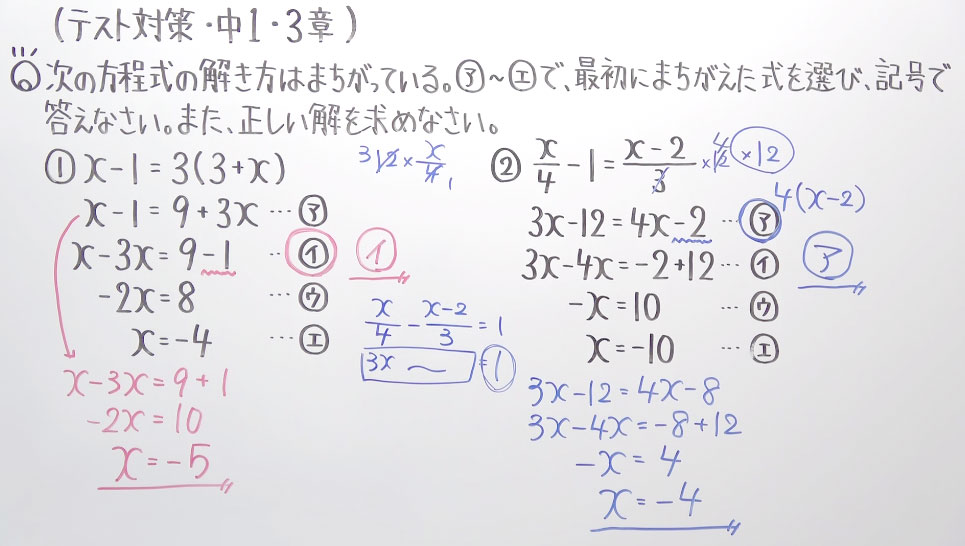 (テスト対策・中1・3章)
Q 次の方程式の解き方はまちがっている。㋐~㋓で、最初にまちがえた式を選び、記号で
答えなさい。また、正しい解を求めなさい。
① x-1=3(3+x)
x-1=9+3x …㋐
x-3x=9-1 …㋑
-2x=8 …㋒
x=-4 …㋓
イ
x-3x=9+1
-2x=10
x=-5
3 12×x/4 1
x/4-(x-2)/3=1
3x ~ =1
② x/4-1=(x-2)/3 ×12 4 ×12
4(x-2)
3x-12=4x-2 …㋐
3x-4x=-2+12 …㋑
-x=10 …㋒
x=-10 …㋓
ア
3x-12=4x-8
3x-4x=-8+12
-x=4
x=-4